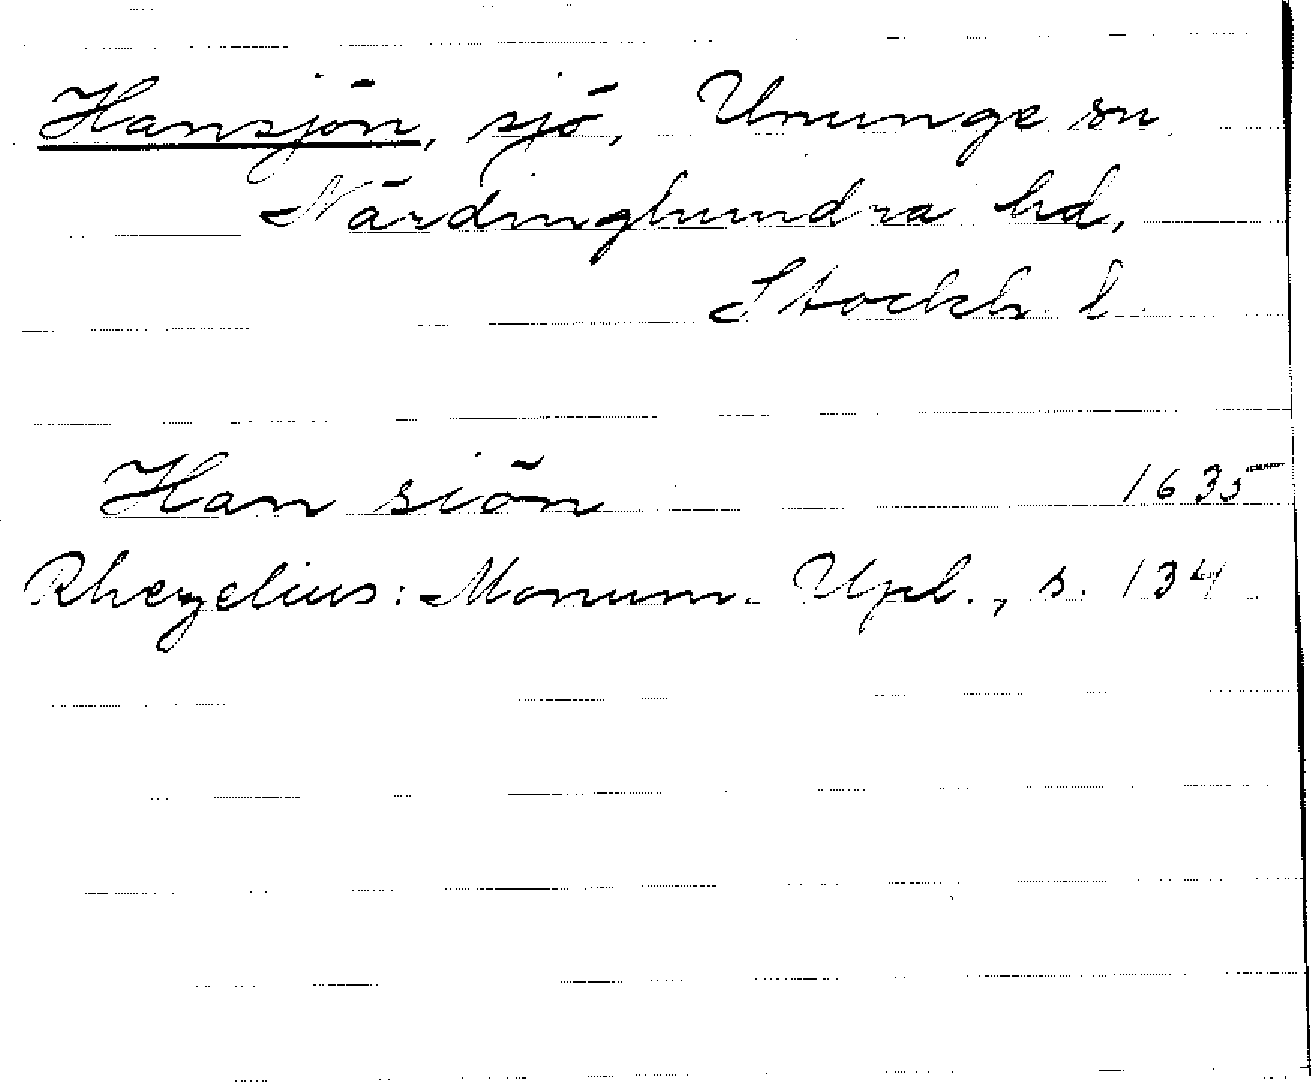 Hansjön, sjö, Ununge sn
Närdinghundra hd,
Stockh. l.
Han siön 1635
Rhezelius: Monum. Upl., s. 134